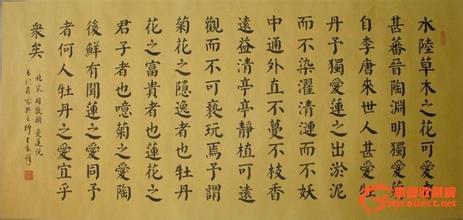 水陸草木之花可愛者
甚蕃晉陶淵明獨愛菊
自李唐來世人甚愛牡
丹予獨愛蓮之出淤泥
而不染濯清漣而不妖
中通外直不蔓不枝香
遠益清亭亭靜植可遠
觀而不可褻玩焉予謂
菊花之隱逸者也牡丹
花之富貴者也蓮花之
君子者也噫菊之愛陶
後鮮有聞蓮之愛同予
者何人牡丹之愛宜乎
眾矣
北宋周敦頤愛蓮說
華夏收藏網
mycollect.net